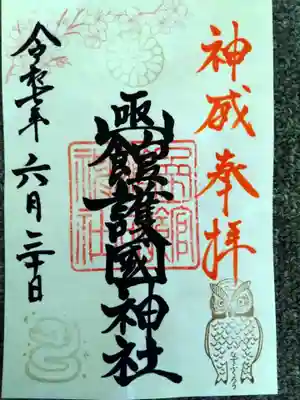 神威奉拝
凾館護國神社
令和七年六月二十日